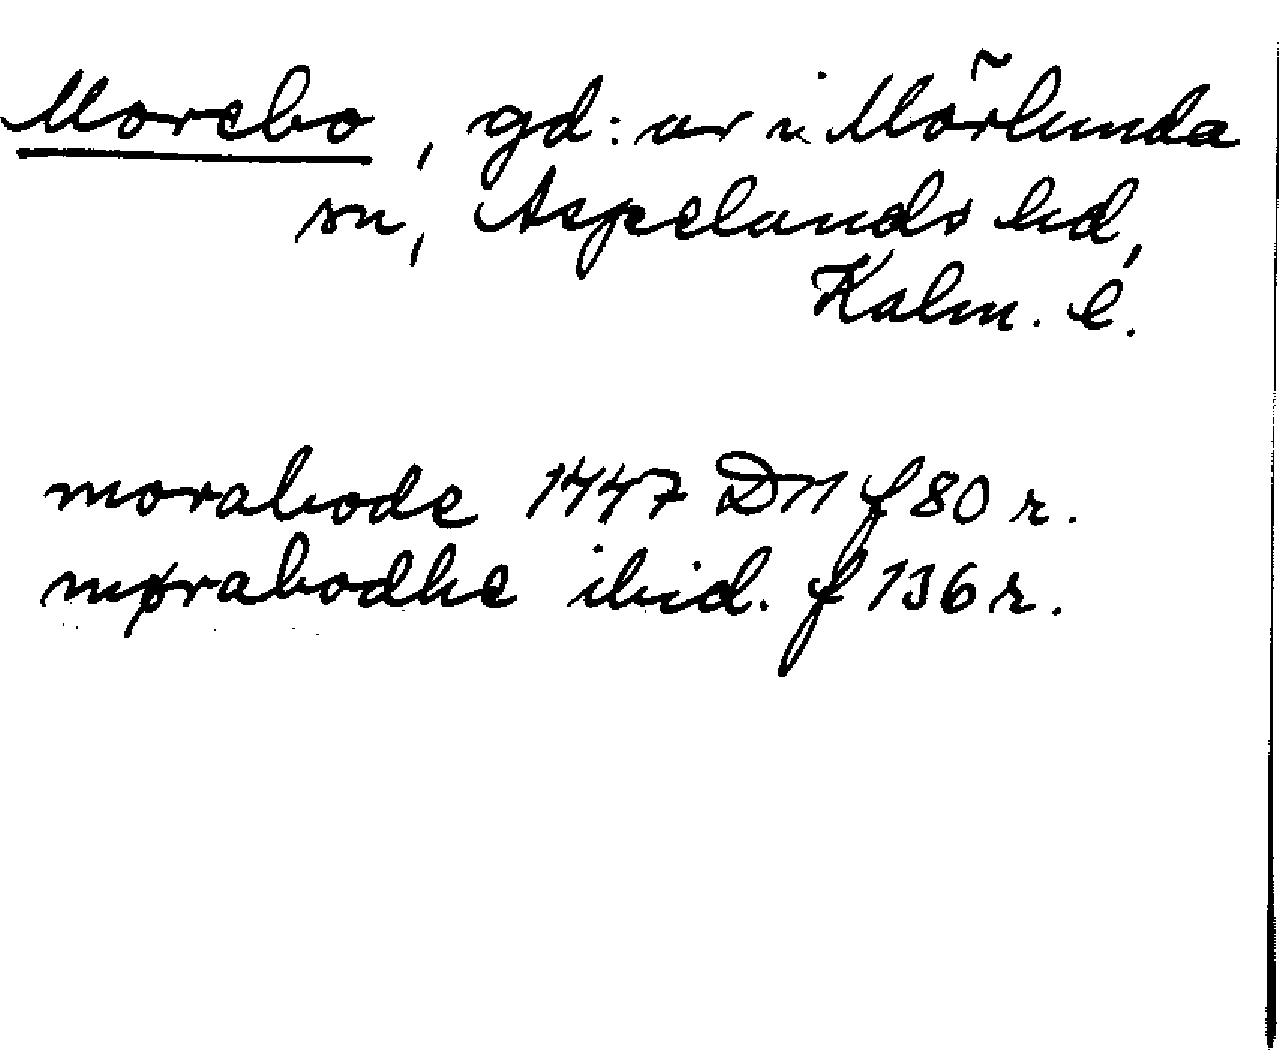 Morebo, gd:ar i Mörlunda
sn, Aspelands hd,
Kalm. l.
morabode 1447 D11 f 80 r.
mørabodhe ibid. f 136 r.